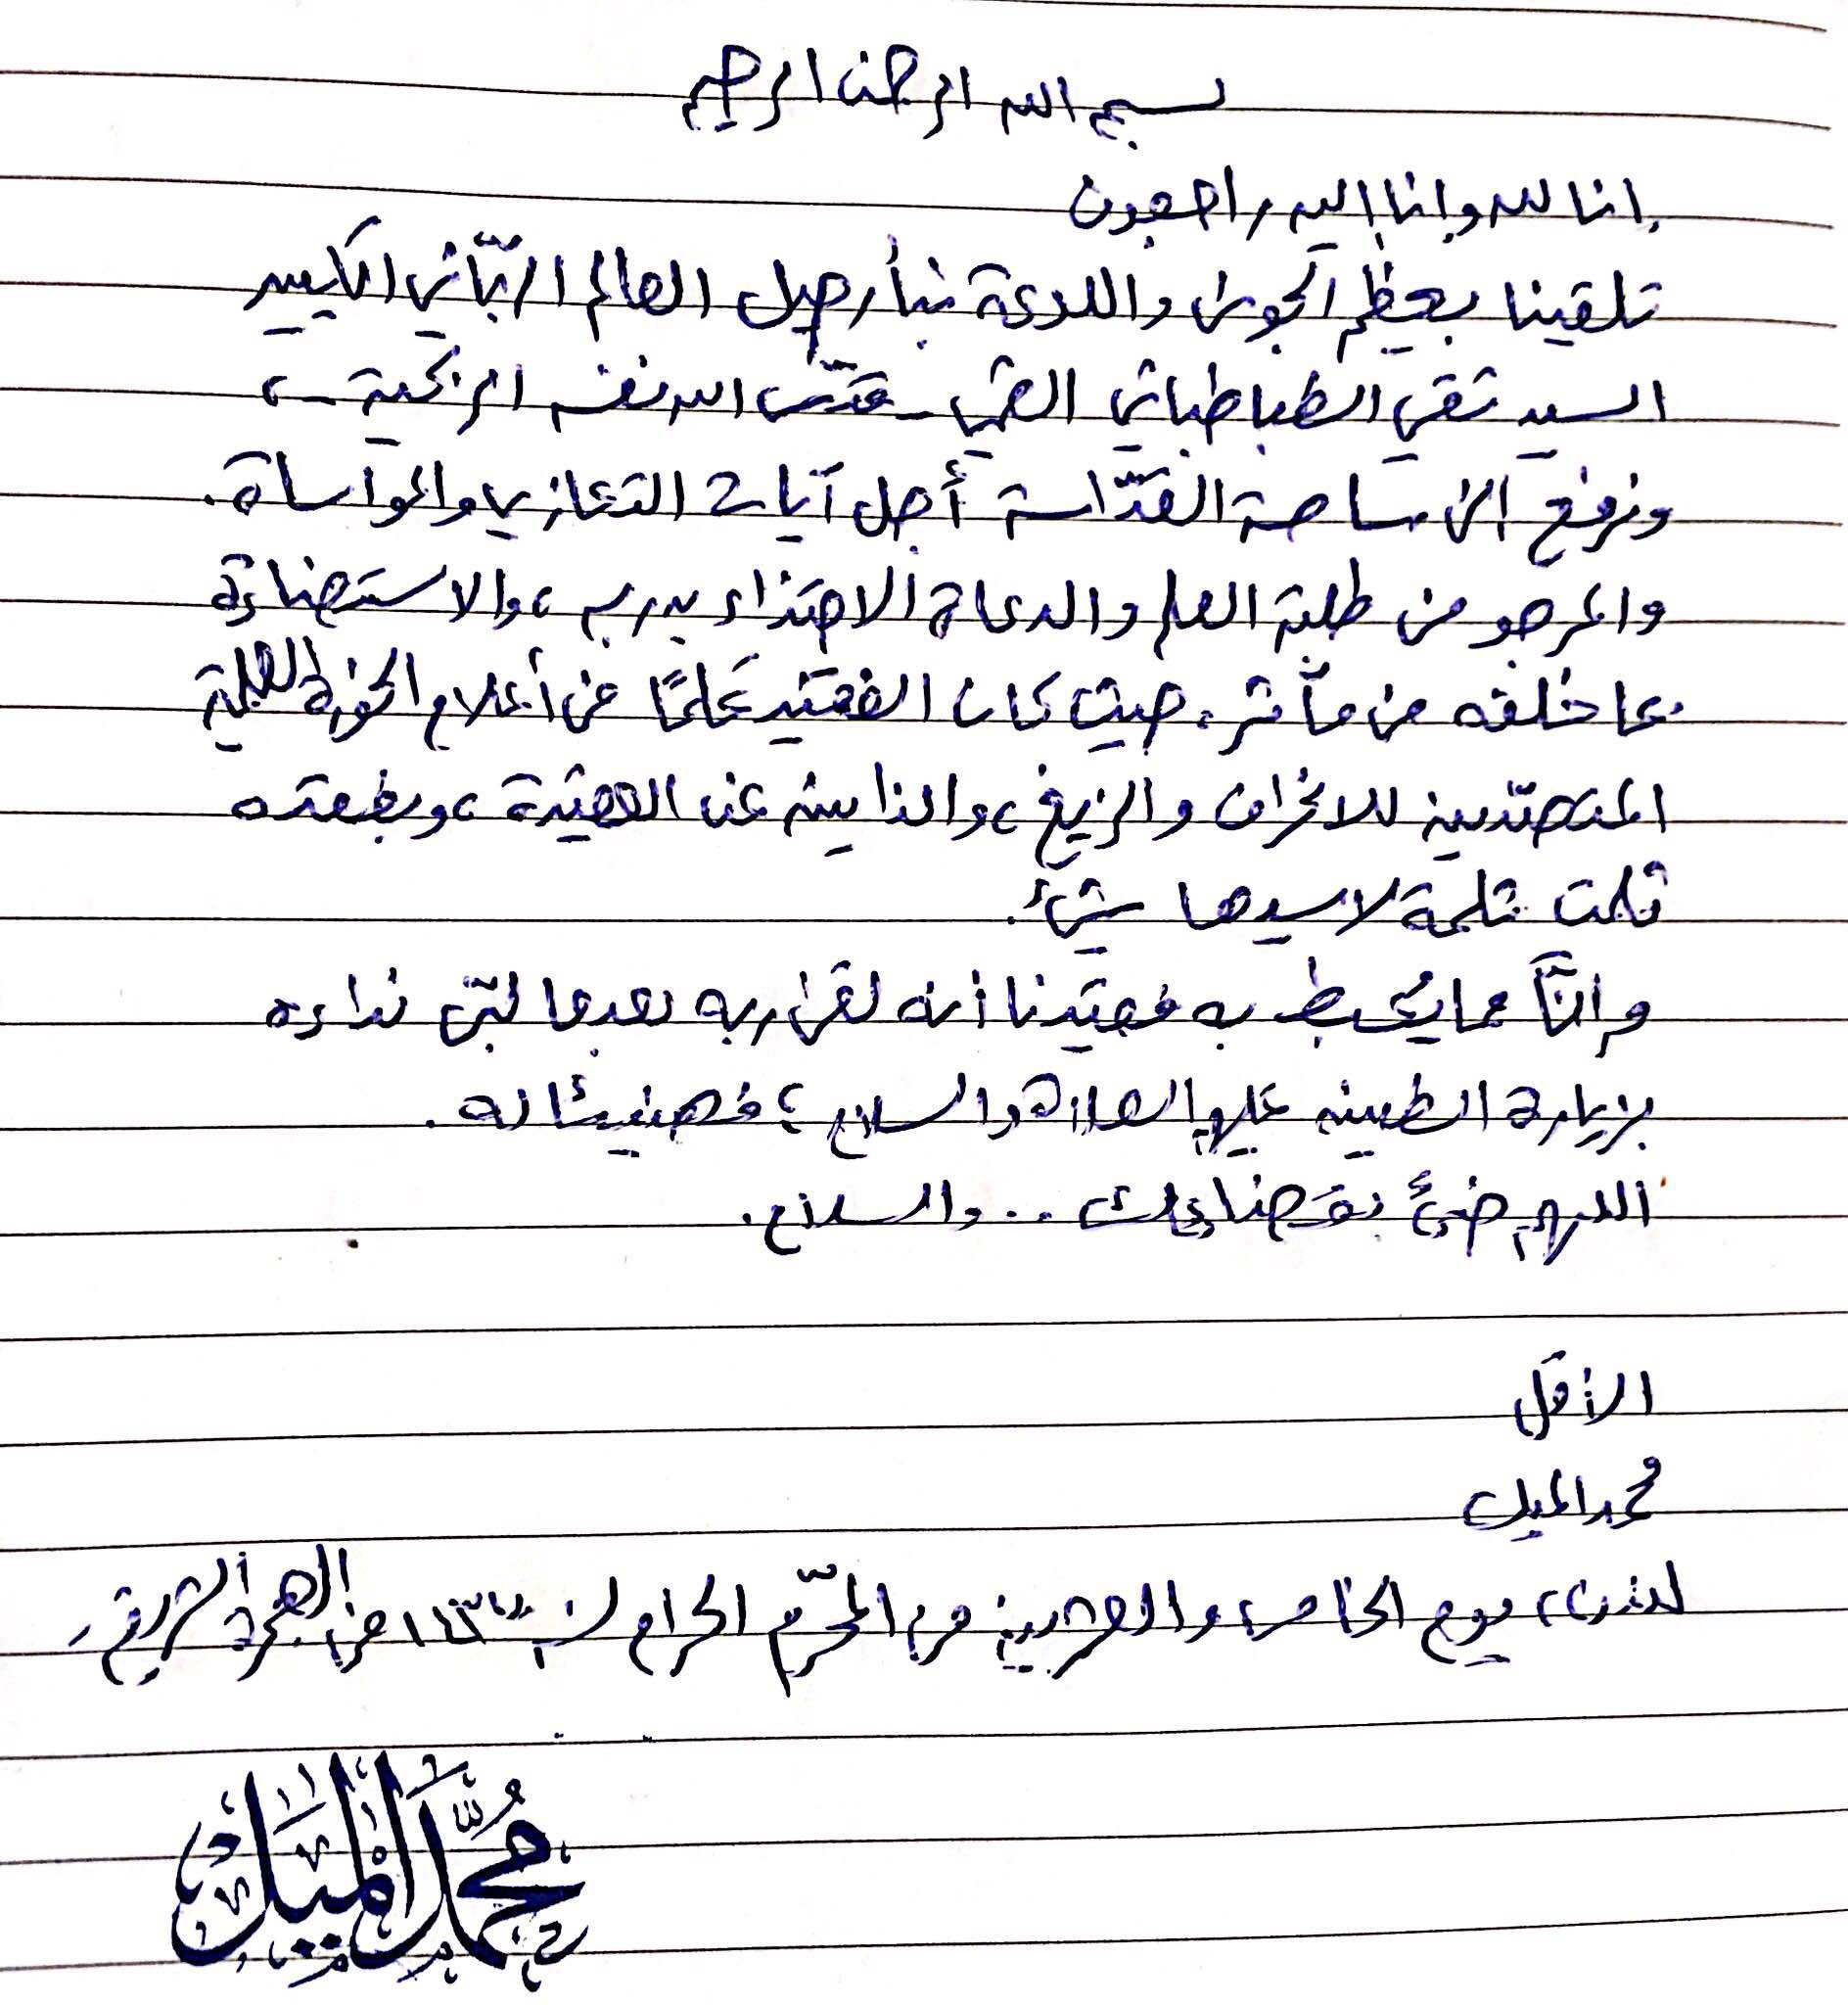 بسم الله الرحمن الرحيم
إنا لله وإنا إليه راجعون
تلقينا بعظيم الجوى واللوعة نبأ رحيل العالم الربّاني الكبير
السيد تقي الطباطبائي القمي - قدّس الله نفسه الزكية - ،
ونرفع إلى ساحة القدّاسة أجل آيات التعازي والمواساة.
والمرجو من طلبة العلم والدعاة الاحتذاء بدربه ، والاستضاءة
بما خلفه من مآثر، حيث كان الفقيد علمًا من أعلام الحوزة العلمية
المتصدّين للانحراف والزيغ ، والذابين عن العقيدة ، وبفقده
ثلمت ثلمة لا يسدها شيء.
وإنّ مما يغبط به فقيدنا أنه لقى ربه بعدما لبّى نداءه
بزيارة الطيبين عليهم الصلاة والسلام ؛ فهنيئًا له.
اللهم رضىً بقضائك .. والسلام.
الأقل
محمد الميل
لندن ، يوم الخامس والعشرين من المحرّم الحرام لسنة من الهجرة الشريفة
محمد الميل